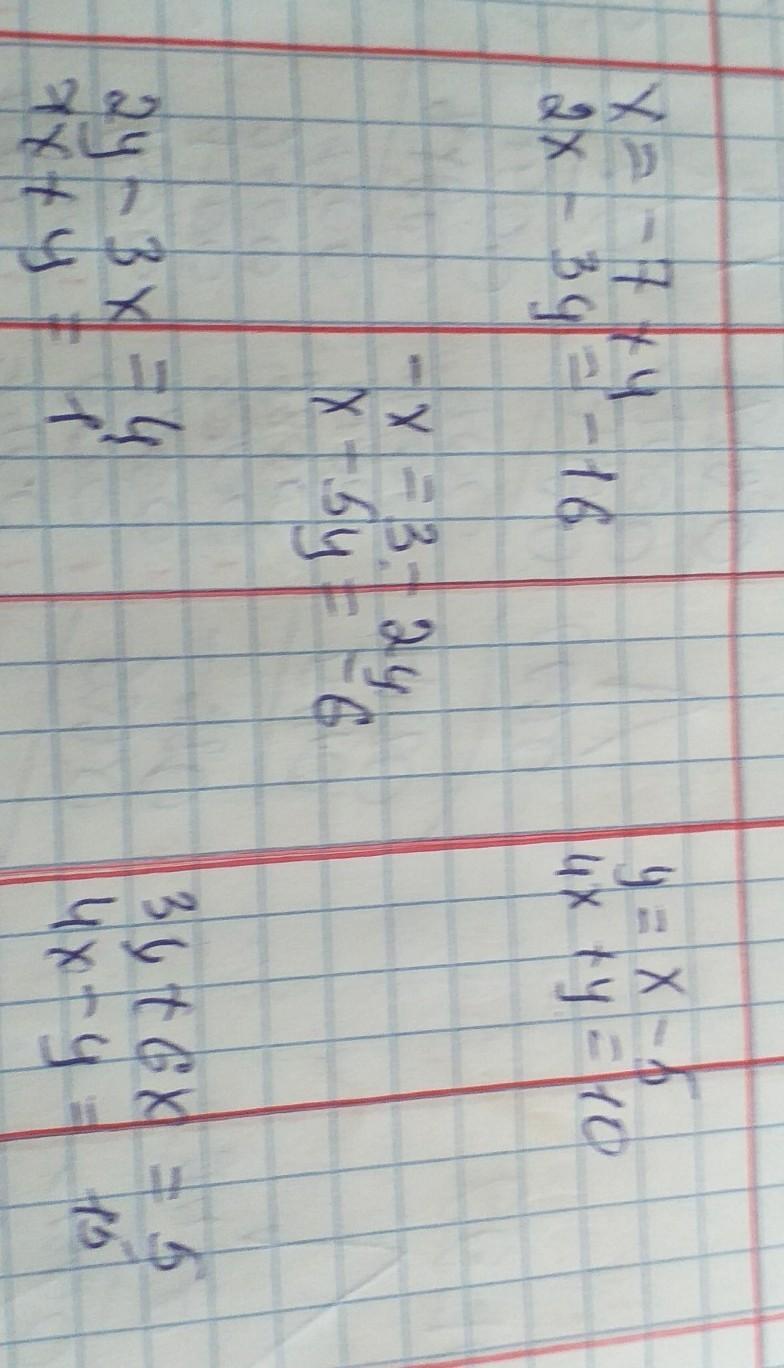 x = -7 + y
2x - 3y = -16
y = x - 5
4x + y = 10
-x = 3 - 2y
x - 5y = -6
2y - 3x = 4
7x + y = 1
3y + 6x = 5
4x - y = 15